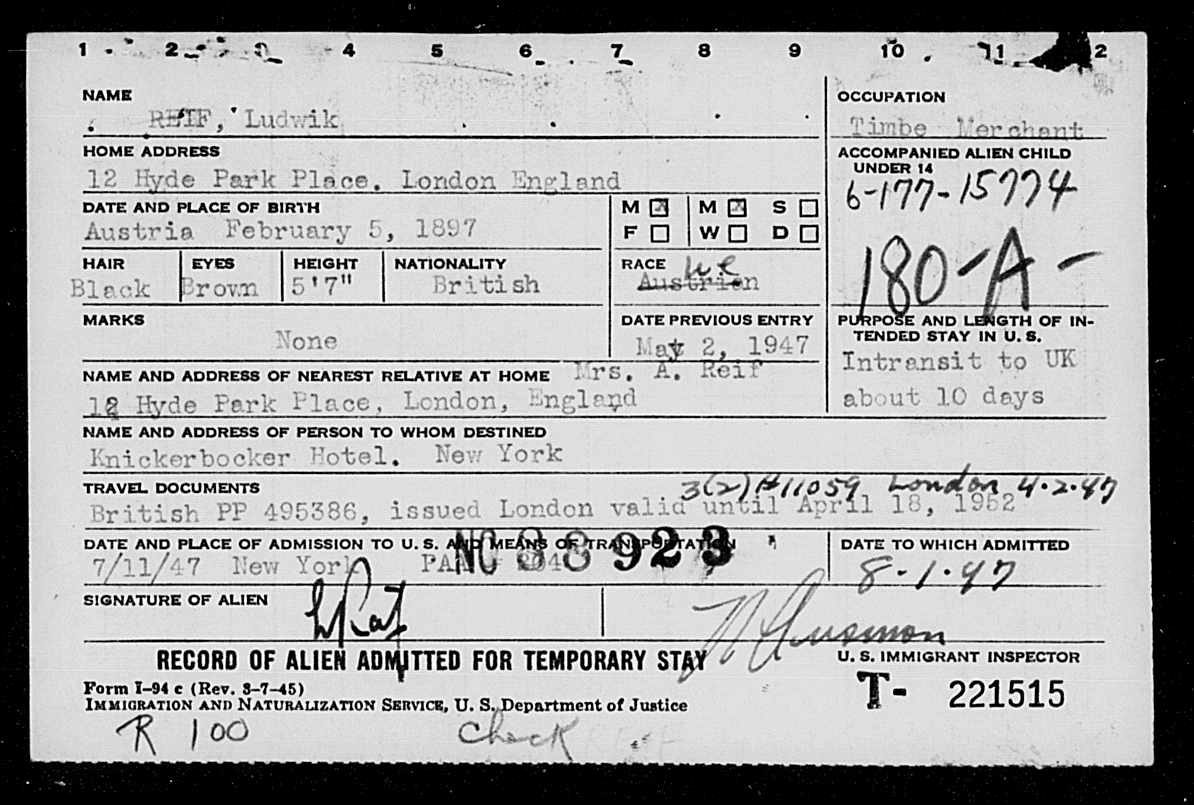 1 2 3 4 5 6 7 8 9 10 11 2
NAME
REIF, Ludwik
OCCUPATION
Timbe Merchant
HOME ADDRESS
12 Hyde Park Place. London England
ACCOMPANIED ALIEN CHILD
UNDER 14
6-177-15774
180-A-
DATE AND PLACE OF BIRTH
Austria February 5, 1897
M ☒ M ☒ S ☐
F ☐ W ☐ D ☐
HAIR EYES HEIGHT NATIONALITY
Black Brown 5'7" British
RACE
Austrian
MARKS
None
DATE PREVIOUS ENTRY
May 2, 1947
PURPOSE AND LENGTH OF IN-
TENDED STAY IN U. S.
Intransit to UK
about 10 days
NAME AND ADDRESS OF NEAREST RELATIVE AT HOME Mrs. A. Reif
12 Hyde Park Place, London, England
NAME AND ADDRESS OF PERSON TO WHOM DESTINED
Knickerbocker Hotel. New York
TRAVEL DOCUMENTS
3(2) #11059 London 4.2.47
British PP 495386, issued London valid until April 18, 1952
DATE AND PLACE OF ADMISSION TO U. S. AND MEANS OF TRANSPORTATION
7/11/47 New York PAA
NC 88923
DATE TO WHICH ADMITTED
8.1.47
SIGNATURE OF ALIEN
RECORD OF ALIEN ADMITTED FOR TEMPORARY STAY
U. S. IMMIGRANT INSPECTOR
Form I-94 c (Rev. 3-7-45)
IMMIGRATION AND NATURALIZATION SERVICE, U. S. Department of Justice
T- 221515
R 100
check